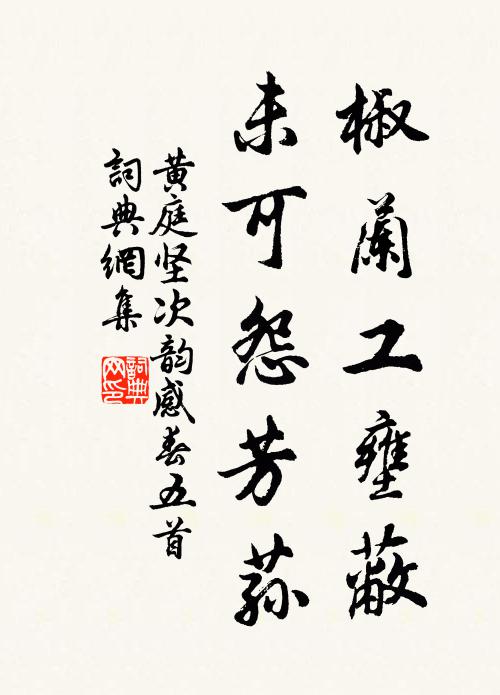 椒蘭工壅蔽
未可怨芳荪
黄庭坚次韵感春五首
詞典網集
詞典网印